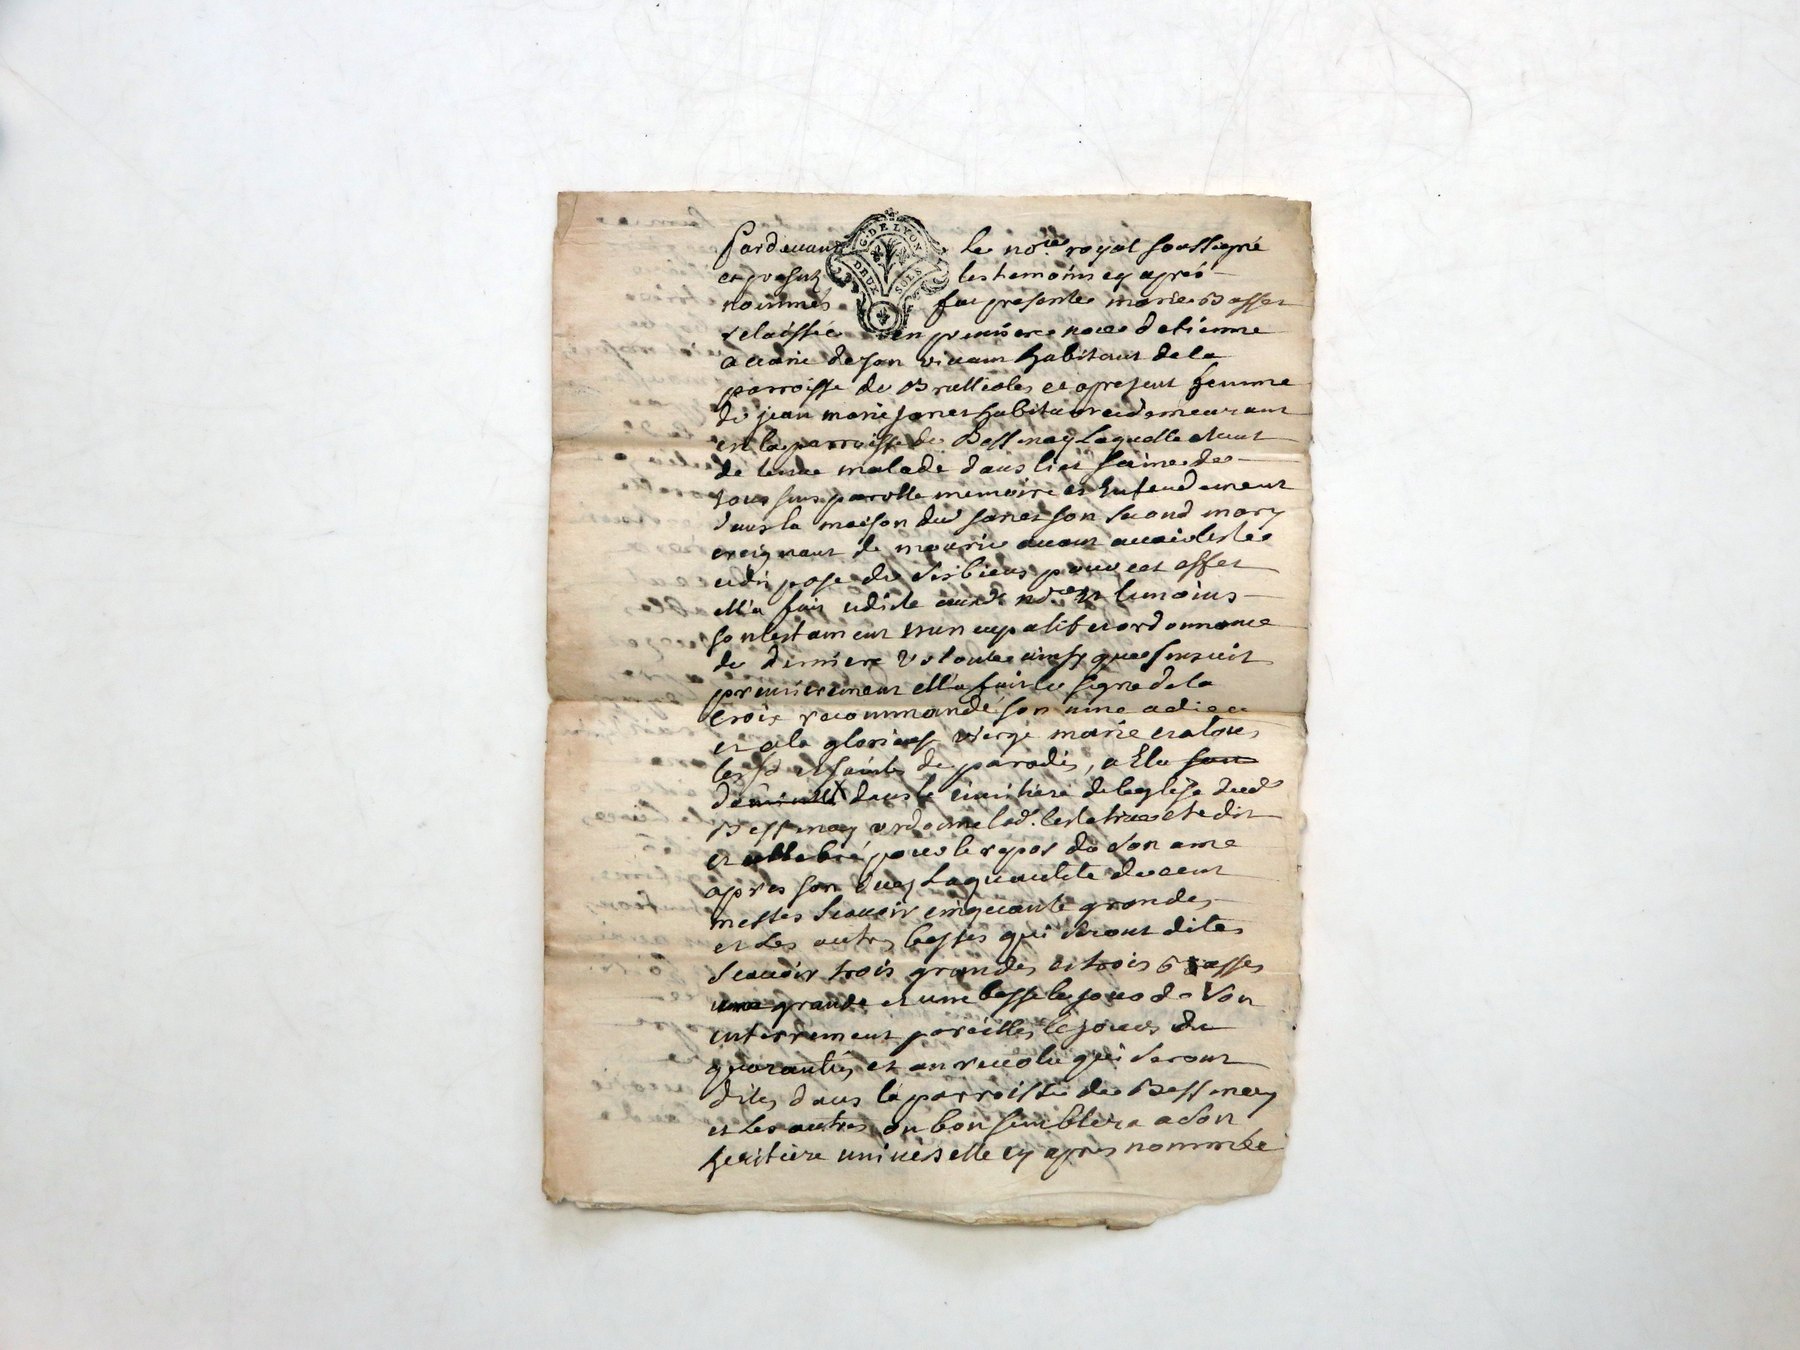 Pardevant le no.re royal soussigné
G. DE LYON
DEUX SOLS
et presentz les temoins cy aprés
nommés fut presente marie Basset
relaissée en premiere noces d'etienne
de son vivant habitant de la
parroisse de Brullioles et apresent femme
de jean marie habitant et demeurant
en la parroisse de Bessenay laquelle etant
detenue malade dans lict saine de
tous sens parolle memoire et Entendement
dans la maison dud son second mary
creignant de mourir avant avoir testé
et disposé de ses biens pour cet effet
ella fait et dicté aud no.re et temoins
son testament nuncupatif et ordonnance
de derniere volonté ainsy que s'ensuit
premierement ella fait le signe de la
croix recommandé son ame a dieu
et a la glorieuse vierge marie et a tous
les s.ts et saintes de paradis, a Elu son
dans le cimitiere de leglise dud
Bessenay ordonne lad. testatrice etre dit
et cellebré pour le repos de son ame
apres son decez La quantité de cent
messes scavoir cinquante grandes
et Les autres basses qui seront dites
scavoir trois grandes et trois basses
une grande et une basse le jour de son
enterrement pareilles le jour du
quarantin et an revolu qui seront
dites dans la parroisse de Bessenay
et Les autres ou bon semblera a son
heritiere universelle cy apres nommée